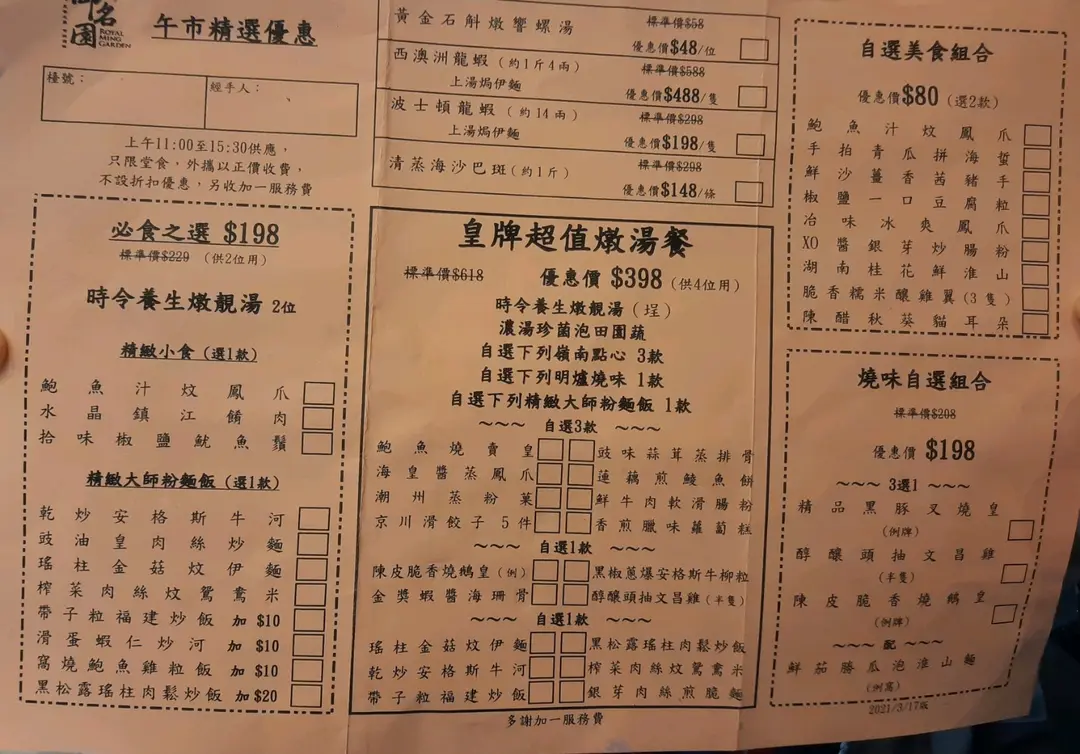 名園
ROYAL
MING
GARDEN
午市精選優惠
檯號：
經手人：
上午11:00至15:30供應，
只限堂食，外攜以正價收費，
不設折扣優惠，另收加一服務費
必食之選 $198
標準價$229 (供2位用)
時令養生燉靚湯 2位
精緻小食 (選1款)
鮑魚汁炆鳳爪
水晶鎮江餚肉
拾味椒鹽魷魚鬚
精緻大師粉麵飯 (選1款)
乾炒安格斯牛河
豉油皇肉絲炒麵
瑤柱金菇炆伊麵
榨菜肉絲炆鴛鴦米
帶子粒福建炒飯 加 $10
滑蛋蝦仁炒河 加 $10
窩燒鮑魚雞粒飯 加 $10
黑松露瑤柱肉鬆炒飯 加 $20
黃金石斛燉響螺湯 標準價$58
優惠價$48/位
西澳洲龍蝦 (約1斤4兩) 標準價$588
上湯焗伊麵 優惠價$488/隻
波士頓龍蝦 (約14兩) 標準價$298
上湯焗伊麵 優惠價$198/隻
清蒸海沙巴斑(約1斤) 標準價$298
優惠價$148/條
皇牌超值燉湯餐
標準價$618 優惠價 $398 (供4位用)
時令養生燉靚湯 (埕)
濃湯珍菌泡田園蔬
自選下列嶺南點心 3款
自選下列明爐燒味 1款
自選下列精緻大師粉麵飯 1款
~~~ 自選3款 ~~~
鮑魚燒賣皇 豉味蒜茸蒸排骨
海皇醬蒸鳳爪 蓮藕煎鯪魚餅
潮州蒸粉菓 鮮牛肉軟滑腸粉
京川滑餃子5件 香煎臘味蘿蔔糕
~~~ 自選1款 ~~~
陳皮脆香燒鵝皇 (例) 黑椒蔥爆安格斯牛柳粒
金獎蝦醬海珊骨 醇釀頭抽文昌雞 (半隻)
~~~ 自選1款 ~~~
瑤柱金菇炆伊麵 黑松露瑤柱肉鬆炒飯
乾炒安格斯牛河 榨菜肉絲炆鴛鴦米
帶子粒福建炒飯 銀芽肉絲煎脆麵
多謝加一服務費
自選美食組合
優惠價$80 (選2款)
鮑魚汁炆鳳爪
手拍青瓜拼海蜇
鮮沙薑香茜豬手
椒鹽一口豆腐粒
冶味冰爽鳳爪
XO醬銀芽炒腸粉
湖南桂花鮮淮山
脆香糯米釀雞翼 (3隻)
陳醋秋葵貓耳朵
燒味自選組合
標準價$208
優惠價 $198
~~~ 3選1 ~~~
精品黑豚叉燒皇
(例牌)
醇釀頭抽文昌雞
(半隻)
陳皮脆香燒鵝皇
(例牌)
~~~ 配 ~~~
鮮茄勝瓜泡淮山麵
(例窩)
2021/3/17版